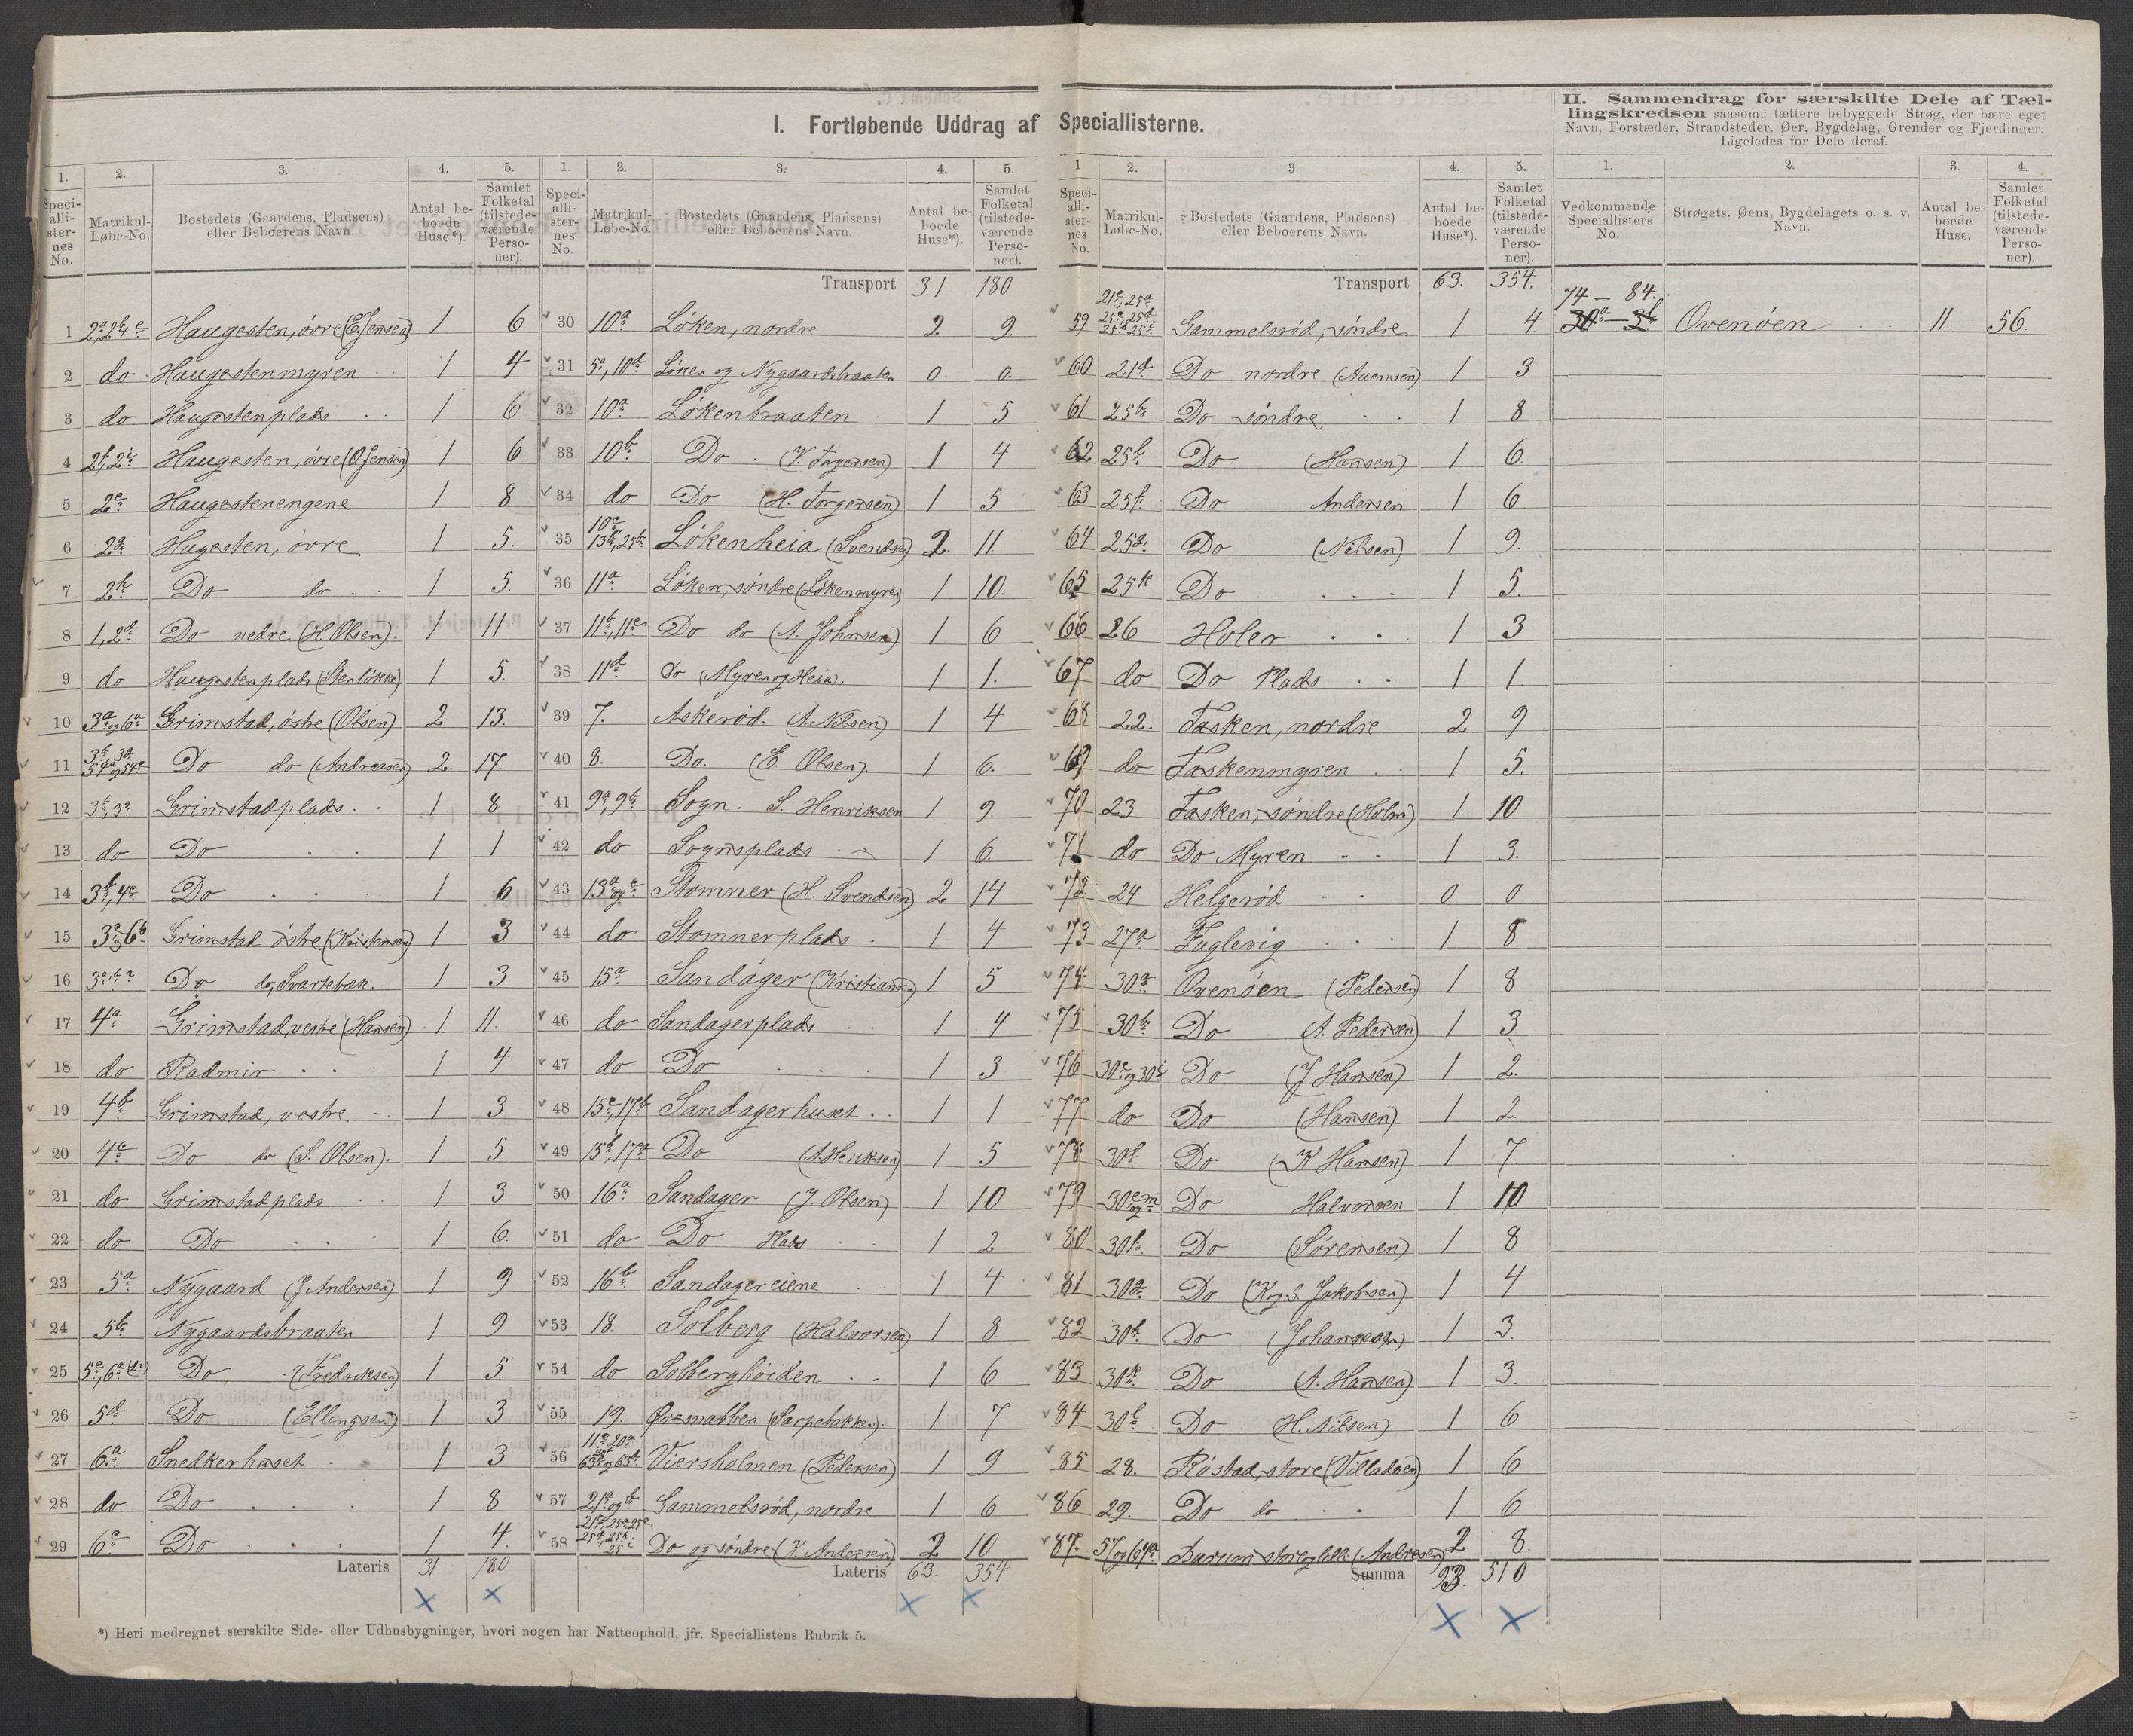 I. Fortløbende Uddrag af Speciallisterne.
1. 2. 3. 4. 5.
Specialli-sternes No. Matrikul-Løbe-No. Bostedets (Gaardens, Pladsens) eller Beboerens Navn. Antal beboede Huse*). Samlet Folketal (tilstedeværende Personer).
1 Haugesten, övre (E Jensen) 1 6
2 do Haugestenmyren 1 4
3 do Haugestenplads 1 6
4 2f, 2i Haugesten, övre (O Jensen) 1 6
5 2e Haugestenengene 1 8
6 2g Hugesten, övre 1 5.
7 2h Do do 1 5.
8 1, 2d Do nedre (H Olsen). 1 11
9 do Haugestenplads (Stenlökka) 1 5.
10 3a og 6a Grimstad, östre (Olsen) 2 13.
11 Do do (Andreasen) 2. 17.
12 Grimstadplads 1 8
13 do Do 1 1
14 3b, 4c Do 1 6
15 3e og 6b Grimstad östre (Kristensen) 1 3
16 Do do, Svartebæk. 1 3
17 4a Grimstad, vestre (Hansen) 1 11.
18 do Radmir 1 4
19 4b Grimstad, vestre 1 3
20 4c Do do (S. Olsen). 1 5
21 do Grimstadplads 1 3
22 do Do 1 6
23 5a Nygaard (J Andersen) 1 9
24 5b Nygaardsbraaten 1 9
25 5c, 6a Do (Fredriksen) 1 5.
26 5d Do (Ellingsen) 1 3
27 6a Snedkerhuset 1 3
28 do Do 1 8
29 6c Do 1 4.
Lateris 31 180
1. 2. 3. 4. 5.
Speci-alli-ster-nes No. Matrikul-Løbe-No. Bostedets (Gaardens, Pladsens) eller Beboerens Navn. Antal beboede Huse*). Samlet Folketal (tilstedeværende Personer).
Transport 31 180
30 10a Löken, nordre 2 9.
31 5a, 10d Löken og Nygaardsbraaten 0. 0.
32 10a Lökenbraaten 1 5
33 10b Do (K. Torgersen) 1 4
34 do Do (H. Torgersen) 1 5
35 10c 13b, 25b Lökenheia (Svendsen) 2. 11
36 11a Löken, söndre (Lökenmyren) 1 10.
37 11b, 11c Do do (A. Johnsen) 1 6
38 11d Do (Myren og Heia). 1 1.
39 7. Askeröd. (A. Nilsen) 1 4
40 8. Do. (E. Olsen). 1 6.
41 9a, 9b Sogn. S. Henriksen 1 9.
42 do Sognsplads 1 6.
43 13a og c Stomner (H. Svendsen) 2 14
44 do Stomnerplads 1. 4
45 15a Sandager (Kristiansen) 1 5
46 do Sandagerplads 1 4
47 do Do 1 3
48 15c, 17b Sandagerhuset 1 1
49 15b, 17a Do 1 5
50 16a Sandager (J Olsen) 1 10
51 do Do Plads 1 2
52 16b Sandagereiene 1 4
53 18. Solberg (Halvorsen) 1 8
54 do Solberghöiden 1 6
55 19. Öresnabben (Sarpebakken). 1 7
56 Viersholmen (Pedersen) 1 9
57 21a og b Gammelsröd, nordre 1 6
58 Do og söndre (K. Andersen) 2 10
Lateris 63. 354
*) Heri medregnet særskilte Side- eller Udhusbygninger, hvori nogen har Natteophold, jfr. Speciallistens Rubrik 5.
1 2. 3. 4. 5.
Speci-alli-ster-nes No. Matrikul-Løbe-No. Bostedets (Gaardens, Pladsens) eller Beboerens Navn. Antal beboede Huse*). Samlet Folketal (tilstedeværende Personer).
Transport 63. 354.
59 Gammelsröd, söndre 1 4
60 21d Do nordre 1 3
61 25b Do söndre 1 8
62 25b Do (Hansen) 1 6
63 25f Do Andersen 1 6
64 25g Do (Nilsen) 1 9.
65 25k Do 1 5.
66 26 Holer 1 3
67 do Do Plads 1 1
68 22. Tasken, nordre 2 9
69 do Taskenmyren 1 5.
70 23 Tasken, söndre (Holm) 1 10
71 do Do Myren 1 3.
72 24 Helgeröd 0 0
73 27a Fuglevig 1 8
74 30a Ovenöen (Pedersen) 1 8
75 30b Do (A. Pedersen) 1 3
76 30c og 30i Do (J Hansen) 1 2.
77 do Do (Hansen) 1 2.
78 30d Do (K Hansen) 1 7.
79 30e og m Do Halvorsen 1 10
80 30f Do (Sörensen) 1 8
81 30g Do (K og S Jakobsen) 1 4
82 30h Do (Johannesen) 1 3.
83 30k Do (A. Hansen) 1 3.
84 30l Do (H. Nilsen) 1 6
85 28. Röstad, store (Villadsen) 1 6
86 29. Do do 1 6
87. 57 og 64a Burum store og lille (Andresen) 2 8.
Summa 93. 510
II. Sammendrag for særskilte Dele af Tællingskredsen saasom: tættere bebyggede Strøg, der bære eget
Navn, Forstæder, Strandsteder, Øer, Bygdelag, Grender og Fjerdinger.
Ligeledes for Dele deraf.
1. 2. 3. 4.
Vedkommende Speciallisters No. Strøgets, Øens, Bygdelagets o. s. v. Navn. Antal beboede Huse. Samlet Folketal (tilstedeværende Personer).
74 — 84. Ovenöen 11. 56.